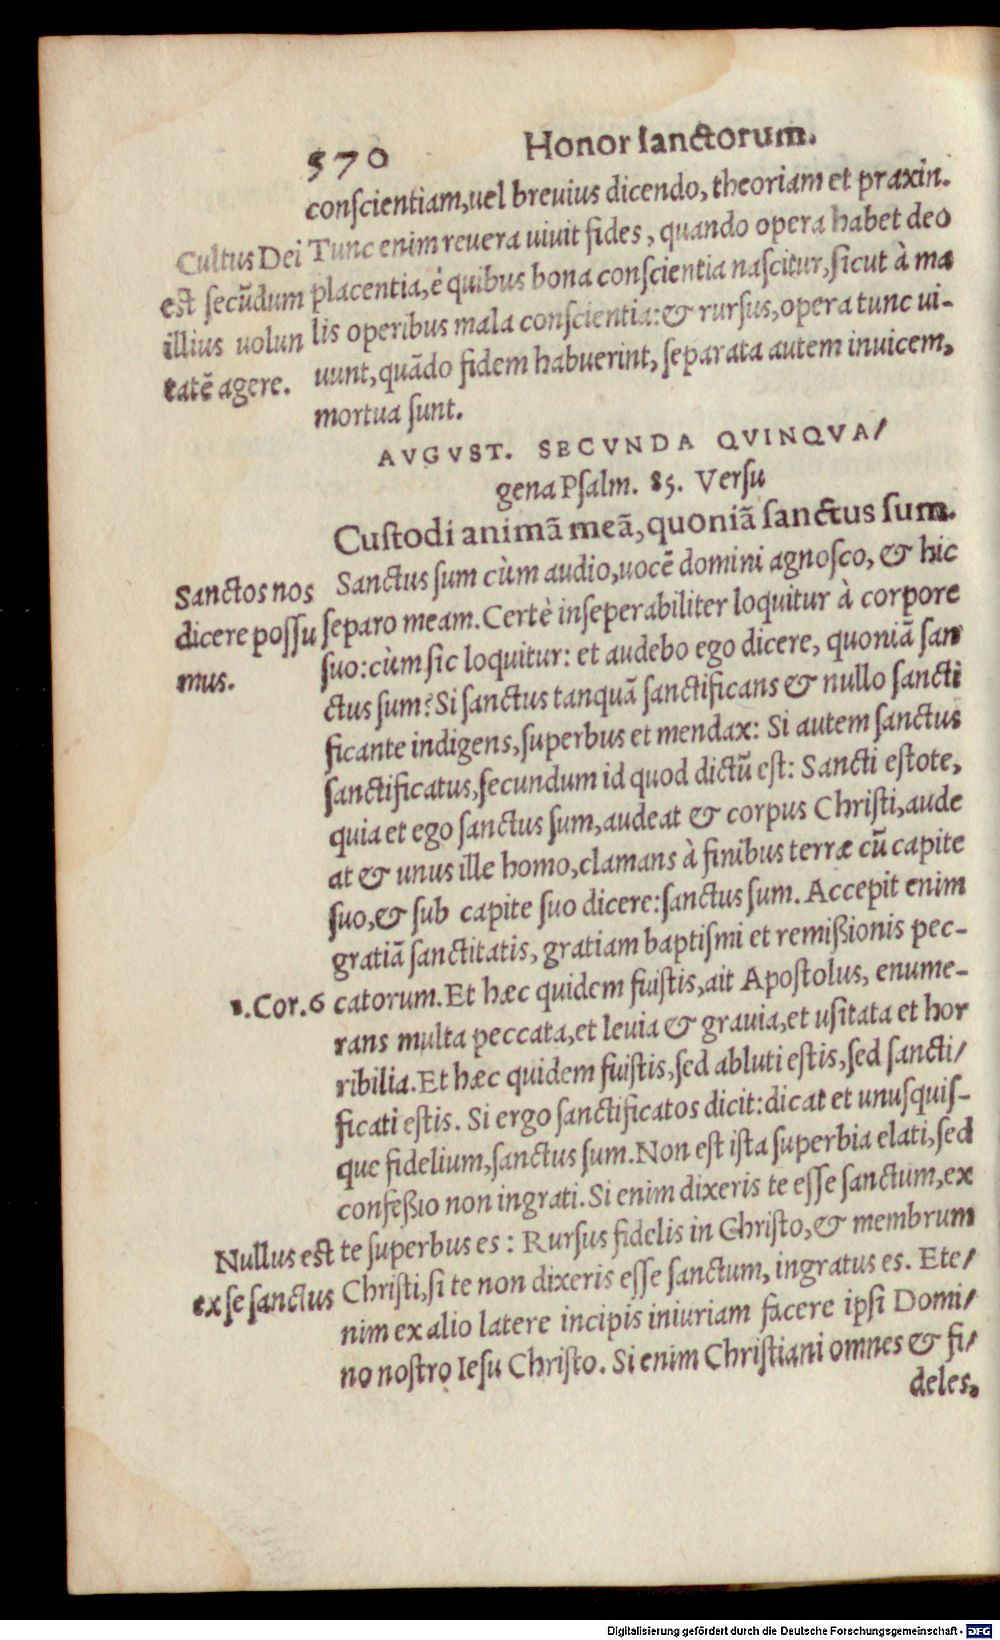 570 Honor ſanctorum.
conſcientiam, uel breuius dicendo, theoriam et praxin.
Tunc enim reuera uiuit fides, quando opera habet deo
placentia, è quibus bona conſcientia naſcitur, ſicut à ma
lis operibus mala conſcientia: & rurſus, opera tunc ui-
uunt, quādo fidem habuerint, ſeparata autem inuicem,
mortua ſunt.
Cultus Dei
est ſecūdum
illius uolun
tatē agere.
AVGVST. SECVNDA QVINQVA/
gena Pſalm. 85. Verſu
Cuſtodi animā meā, quoniā ſanctus ſum.
Sanctus ſum cùm audio, uocē domini agnoſco, & hic
ſeparo meam. Certè inſeperabiliter loquitur à corpore
ſuo: cùm ſic loquitur: et audebo ego dicere, quoniā ſan
ctus ſum? Si ſanctus tanquā ſanctificans & nullo ſancti
ficante indigens, ſuperbus et mendax: Si autem ſanctus
ſanctificatus, ſecundum id quod dictū eſt: Sancti eſtote,
quia et ego ſanctus ſum, audeat & corpus Chriſti, aude
at & unus ille homo, clamans à finibus terræ cū capite
ſuo, & ſub capite ſuo dicere: ſanctus ſum. Accepit enim
gratiā ſanctitatis, gratiam baptiſmi et remiſsionis pec-
catorum. Et hæc quidem fuiſtis, ait Apoſtolus, enume-
rans multa peccata, et leuia & grauia, et uſitata et hor
ribilia. Et hæc quidem fuiſtis, ſed abluti eſtis, ſed ſancti/
ficati eſtis. Si ergo ſanctificatos dicit: dicat et unuſquiſ-
que fidelium, ſanctus ſum. Non eſt iſta ſuperbia elati, ſed
confeſsio non ingrati. Si enim dixeris te eſſe ſanctum, ex
te ſuperbus es: Rurſus fidelis in Chriſto, & membrum
Chriſti, ſi te non dixeris eſſe ſanctum, ingratus es. Ete/
nim ex alio latere incipis iniuriam facere ipſi Domi/
no noſtro Ieſu Chriſto. Si enim Chriſtiani omnes & fi/
deles,
Sanctos nos
dicere poſſu
mus.
1. Cor. 6
Nullus eſt
ex ſe ſanctus
Digitalisierung gefördert durch die Deutsche Forschungsgemeinschaft - DFG